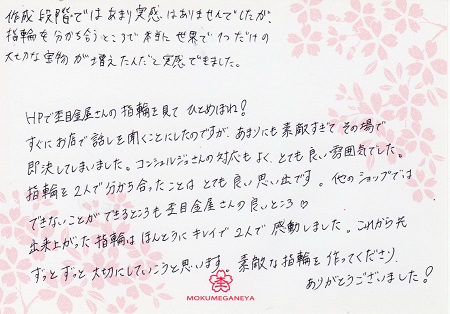 作成段階ではあまり実感はありませんでしたが、
指輪を分かち合うところで本当に世界で1つだけの
大切な宝物が増えたんだと実感できました。
HPで杢目金屋さんの指輪を見てひとめぼれ!
すぐにお店で話しを聞くことにしたのですが、あまりにも素敵すぎてその場で
即決してしまいました。コンシェルジュさんの対応もよく、とても良い雰囲気でした。
指輪を2人で分かち合ったことはとても良い思い出です。他のショップでは
できないことができるところも杢目金屋さんの良いところ♡
出来上がった指輪はほんとうにキレイで2人で感動しました。これから先
ずっとずっと大切にしていこうと思います 素敵な指輪を作ってくださり
ありがとうございました!
MOKUMEGANEYA